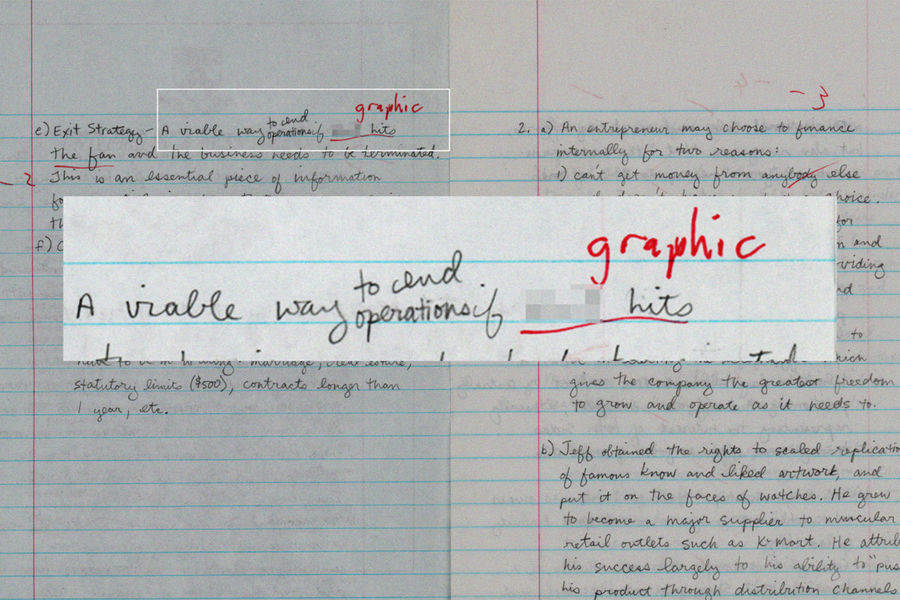 graphic
e) Exit Strategy - A viable way to end operations if hits
the fan and the business needs to be terminated.
- 2 This is an essential piece of information
f)
A viable way to end operations if hits
graphic
statutory limits ($500), contracts longer than
1 year, etc.
- 3
2. a) An entrepreneur may choose to finance
internally for two reasons:
1) can't get money from anybody else
choice.
for
and
to
which
gives the company the greatest freedom
to grow and operate as it needs to.
b) Jeff obtained the rights to scaled
of famous know and liked artwork, and
put it on the faces of watches. He grew
to become a major supplier to
retail outlets such as K-Mart. He
his success largely to his ability to
his product through distribution channels